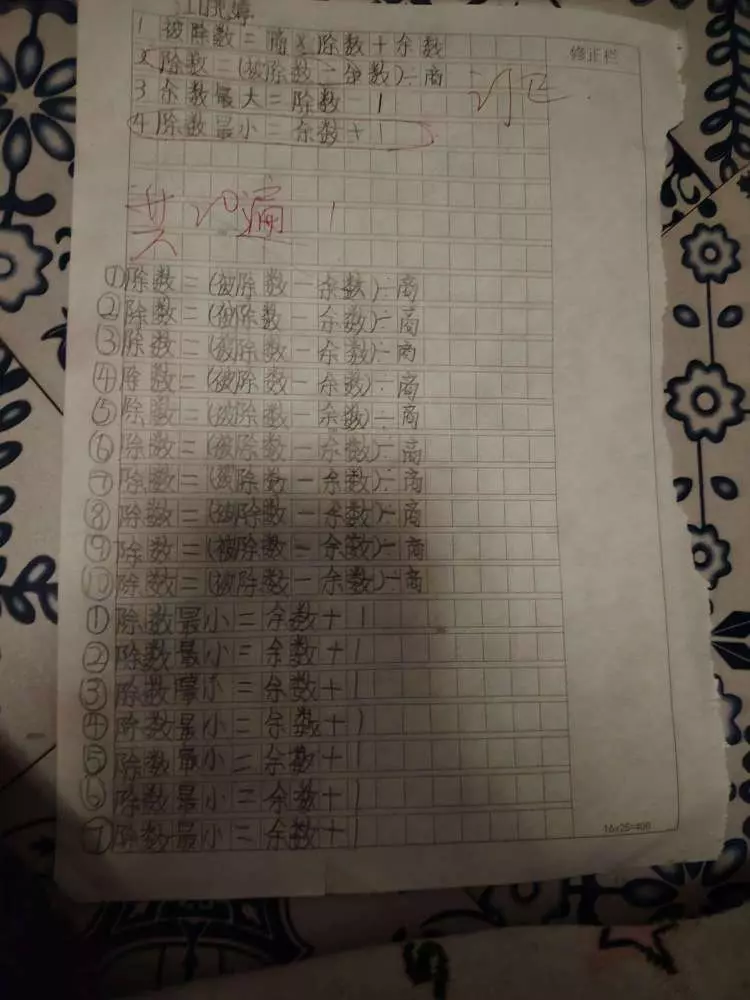 1 被除数=商×除数+余数
修正栏
2 除数=(被除数-余数)÷商
订正
3 余数最大=除数-1
4 除数最小=余数+1
共20遍
①除数=(被除数-余数)÷商
②除数=(被除数-余数)÷商
③除数=(被除数-余数)÷商
④除数=(被除数-余数)÷商
⑤除数=(被除数-余数)÷商
⑥除数=(被除数-余数)÷商
⑦除数=(被除数-余数)÷商
⑧除数=(被除数-余数)÷商
⑨除数=(被除数-余数)÷商
⑩除数=(被除数-余数)÷商
①除数最小=余数+1
②除数最小=余数+1
③除数最小=余数+1
④除数最小=余数+1
⑤除数最小=余数+1
⑥除数最小=余数+1
⑦除数最小=余数+1
16×25=400